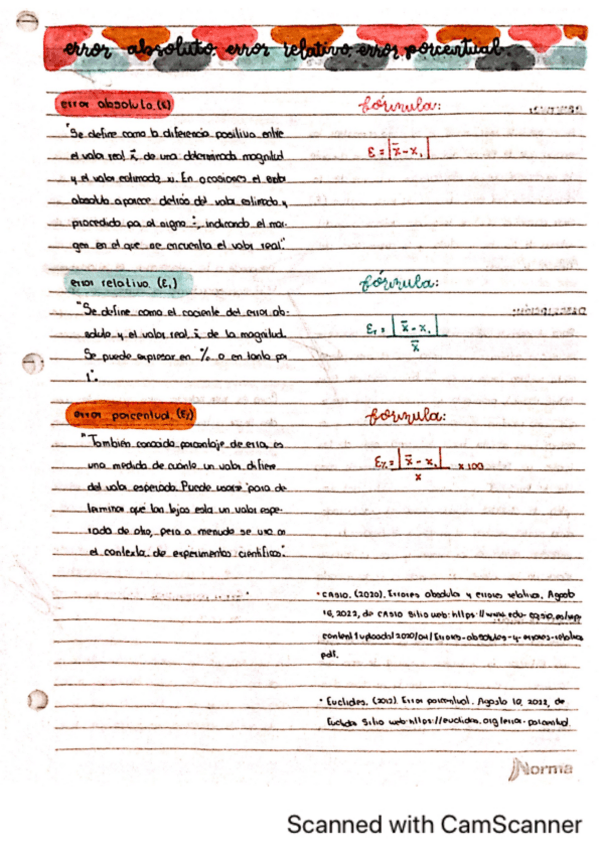 error absoluto, error relativo, error porcentual.
error absoluto. (ε)
fórmula:
"Se define como la diferencia positiva entre
el valor real x̄, de una determinada magnitud
ε = |x̄ - xᵢ|
y el valor estimado xᵢ. En ocasiones el error
absoluto aparece detrás del valor estimado y
procedido por el signo ±, indicando el mar-
gen en el que se encuentra el valor real."
error relativo. (εᵣ)
fórmula:
"Se define como el cociente del error ab-
soluto y el valor real x̄, de la magnitud.
Se puede expresar en % o en tanto por
1".
εᵣ = |x̄ - xᵢ|
x̄
error porcentual. (ε%)
fórmula:
"También conocido porcentaje de error, es
una medida de cuánto un valor difiere
del valor esperado. Puede usarse para de
terminar qué tan lejos esta un valor espe-
rado de otro, pero a menudo se usa en
el contexto de experimentos científicos".
ε% = |x̄ - xᵢ| x 100
x
• CASIO. (2020). Errores absoluto y errores relativo. Agosto
16, 2022, de CASIO Sitio web: https://www.edu-casio.es/wp-
content/uploads/2020/04/Errores-absolutos-y-errores-relativos
pdf.
• Euclides. (2012). Error porcentual. Agosto 10, 2022, de
Euclides Sitio web: https://euclides.org/error-porcentual.
Norma
Scanned with CamScanner